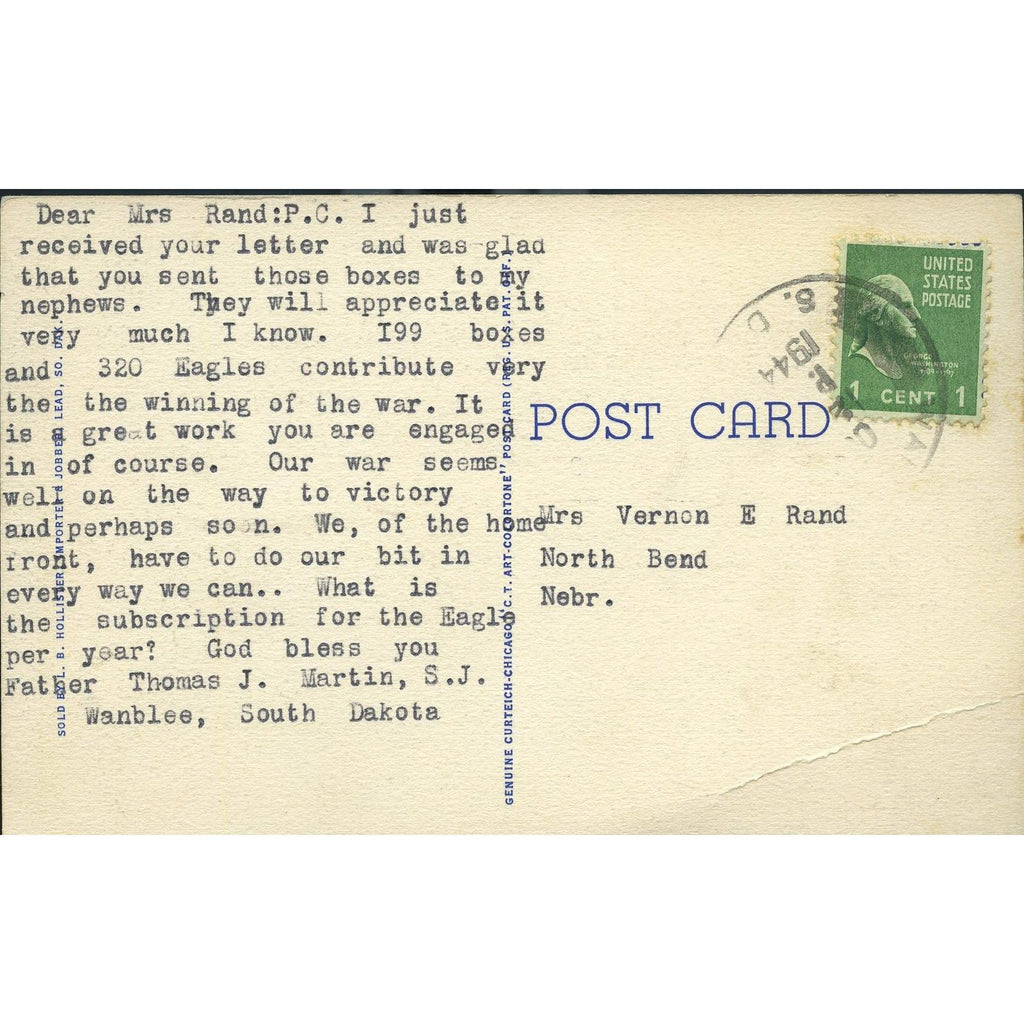 Dear Mrs Rand:P.C. I just
received your letter and was glad
that you sent those boxes to my
nephews. They will appreciate it
very much I know. I99 boxes
and 320 Eagles contribute very
the the winning of the war. It
is a great work you are engaged
in of course. Our war seems
well on the way to victory
and perhaps soon. We, of the home
front, have to do our bit in
every way we can.. What is
the subscription for the Eagle
per year? God bless you
Father Thomas J. Martin, S.J.
Wanblee, South Dakota
SOLD BY L. B. HOLLISTER, IMPORTER & JOBBER, LEAD, SO. DAK.
GENUINE CURTEICH-CHICAGO "C.T. ART-COLORTONE" POST CARD (REG. U.S. PAT. OFF.)
POST CARD
Mrs Vernon E Rand
North Bend
Nebr.
UNITED
STATES
POSTAGE
GEORGE
WASHINGTON
1 CENT 1
1944
S. D